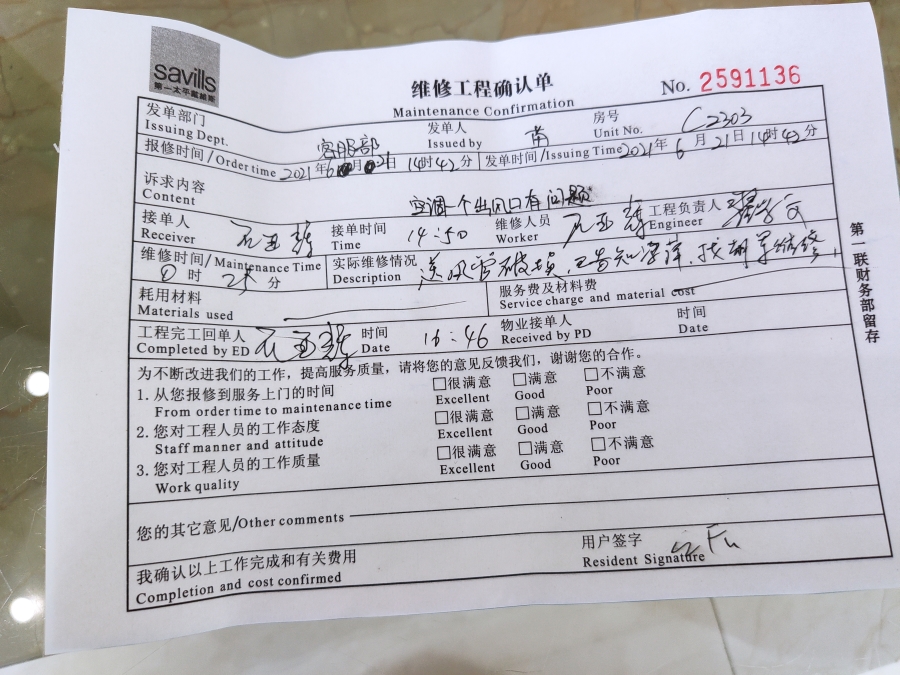 savills
第一太平戴維斯
维修工程确认单
Maintenance Confirmation
No. 2591136
发单部门 客服部 发单人 房号 C2303
Issuing Dept. Issued by Unit No.
报修时间/Order time 2021年6月21日 14时42分 发单时间/Issuing Time 2021年6月21日14时42分
诉求内容 空调一个出风口有问题
Content
接单人 接单时间 14:50 维修人员 工程负责人
Receiver Time Worker Engineer
维修时间/Maintenance Time 实际维修情况 送风管破损,已告知
0时25分 Description
耗用材料 服务费及材料费
Materials used Service charge and material cost
工程完工回单人 时间 16:46 物业接单人 时间
Completed by ED Date Received by PD Date
为不断改进我们的工作,提高服务质量,请将您的意见反馈我们,谢谢您的合作。
1. 从您报修到服务上门的时间 □很满意 □满意 □不满意
From order time to maintenance time Excellent Good Poor
2. 您对工程人员的工作态度 □很满意 □满意 □不满意
Staff manner and attitude Excellent Good Poor
3. 您对工程人员的工作质量 □很满意 □满意 □不满意
Work quality Excellent Good Poor
您的其它意见/Other comments
我确认以上工作完成和有关费用 用户签字
Completion and cost confirmed Resident Signature
第一联财务部留存